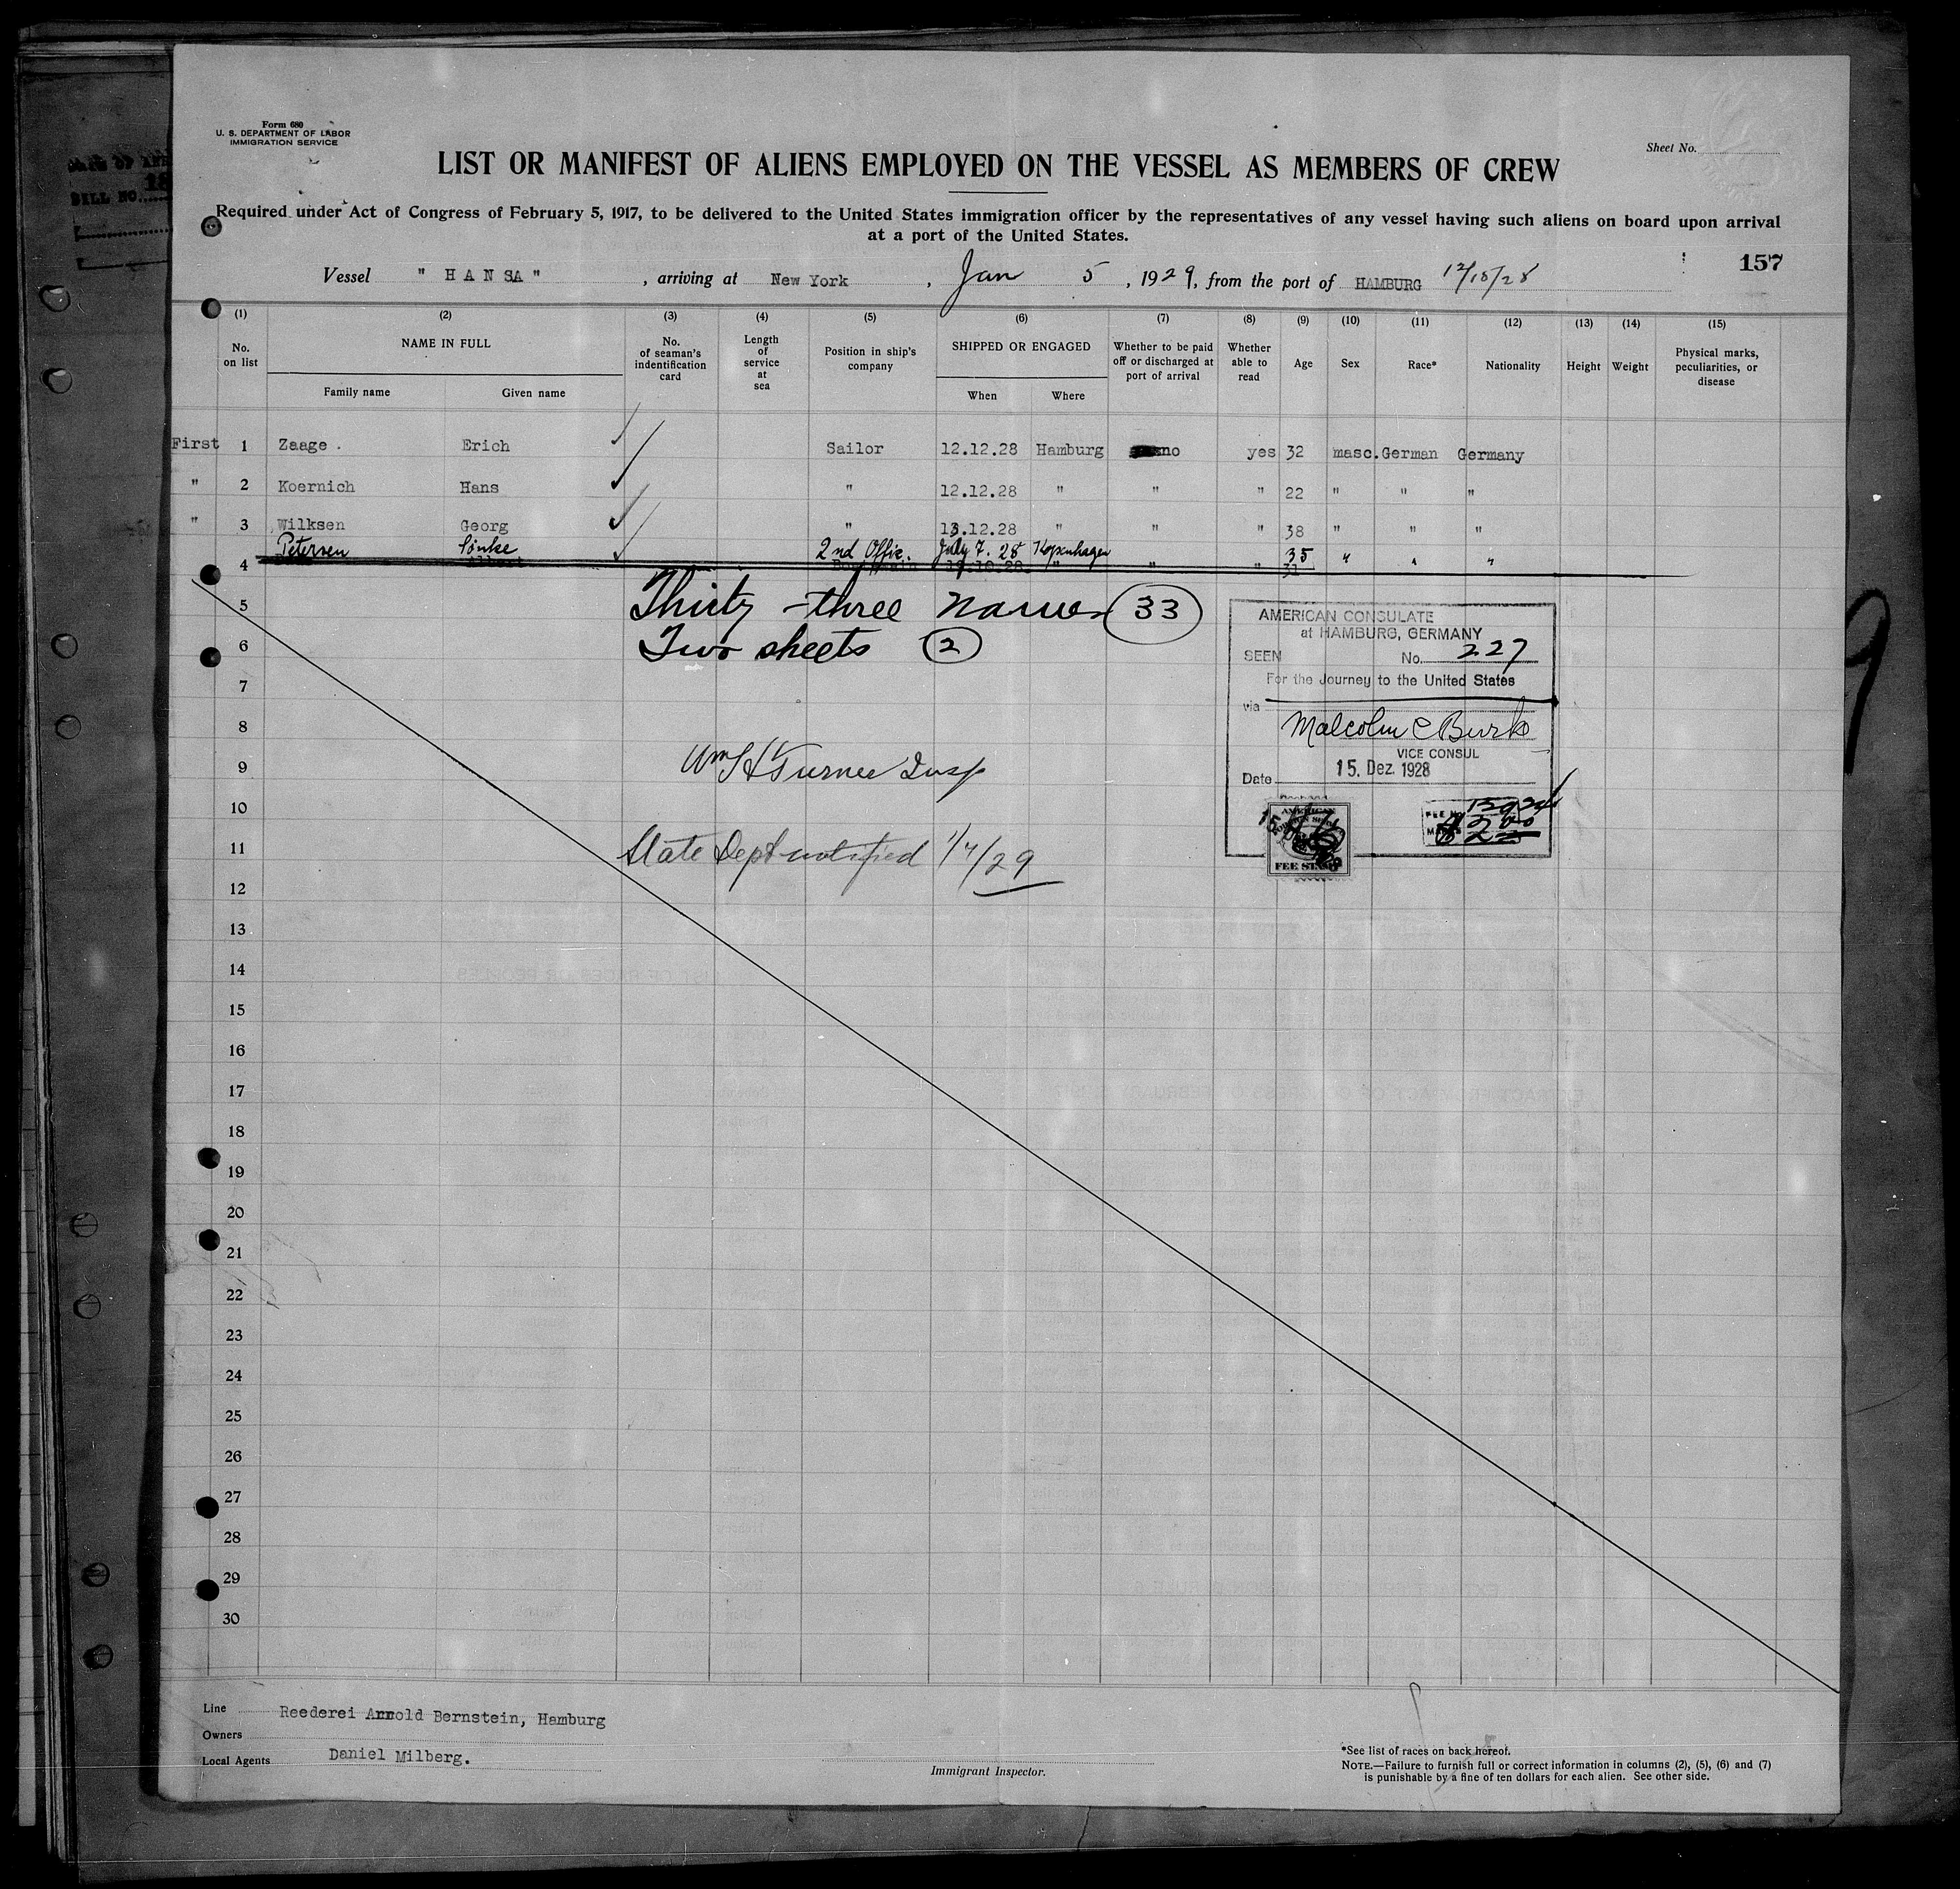 Form 680
U. S. DEPARTMENT OF LABOR
IMMIGRATION SERVICE
Sheet No.
LIST OR MANIFEST OF ALIENS EMPLOYED ON THE VESSEL AS MEMBERS OF CREW
Required under Act of Congress of February 5, 1917, to be delivered to the United States immigration officer by the representatives of any vessel having such aliens on board upon arrival
at a port of the United States.
157
BILL NO. 18
Vessel " H A N SA " , arriving at New York , Jan 5 , 1929, from the port of HAMBURG 12/15/28
(1) (2) (3) (4) (5) (6) (7) (8) (9) (10) (11) (12) (13) (14) (15)
No. on list
NAME IN FULL
Family name Given name
No. of seaman's indentification card
Length of service at sea
Position in ship's company
SHIPPED OR ENGAGED
When Where
Whether to be paid off or discharged at port of arrival
Whether able to read
Age
Sex
Race*
Nationality
Height
Weight
Physical marks, peculiarities, or disease
First 1 Zaage . Erich Sailor 12.12.28 Hamburg no yes 32 masc. German Germany
" 2 Koernich Hans " 12.12.28 " " " 22 " " "
" 3 Wilksen Georg " 13.12.28 " " " 38 " " "
Petersen Sönke 2nd Offic. July 7. 28 Kopenhagen 35 " " "
4 Albert " " " 31
5 Thirty-three names 33
6 Two sheets 2
7
8
9 Wm H Turner Insp
10
11 State Dept notified 1/7/29
12
13
14
15
16
17
18
19
20
21
22
23
24
25
26
27
28
29
30
AMERICAN CONSULATE
at HAMBURG, GERMANY
SEEN No. 227
For the Journey to the United States
via
Malcolm C Burk
VICE CONSUL
Date 15. Dez. 1928
AMERICAN
FEE STAMP
FEE NO.
9
Line Reederei Arnold Bernstein, Hamburg
Owners
Local Agents Daniel Milberg.
Immigrant Inspector.
*See list of races on back hereof.
NOTE.—Failure to furnish full or correct information in columns (2), (5), (6) and (7)
is punishable by a fine of ten dollars for each alien. See other side.